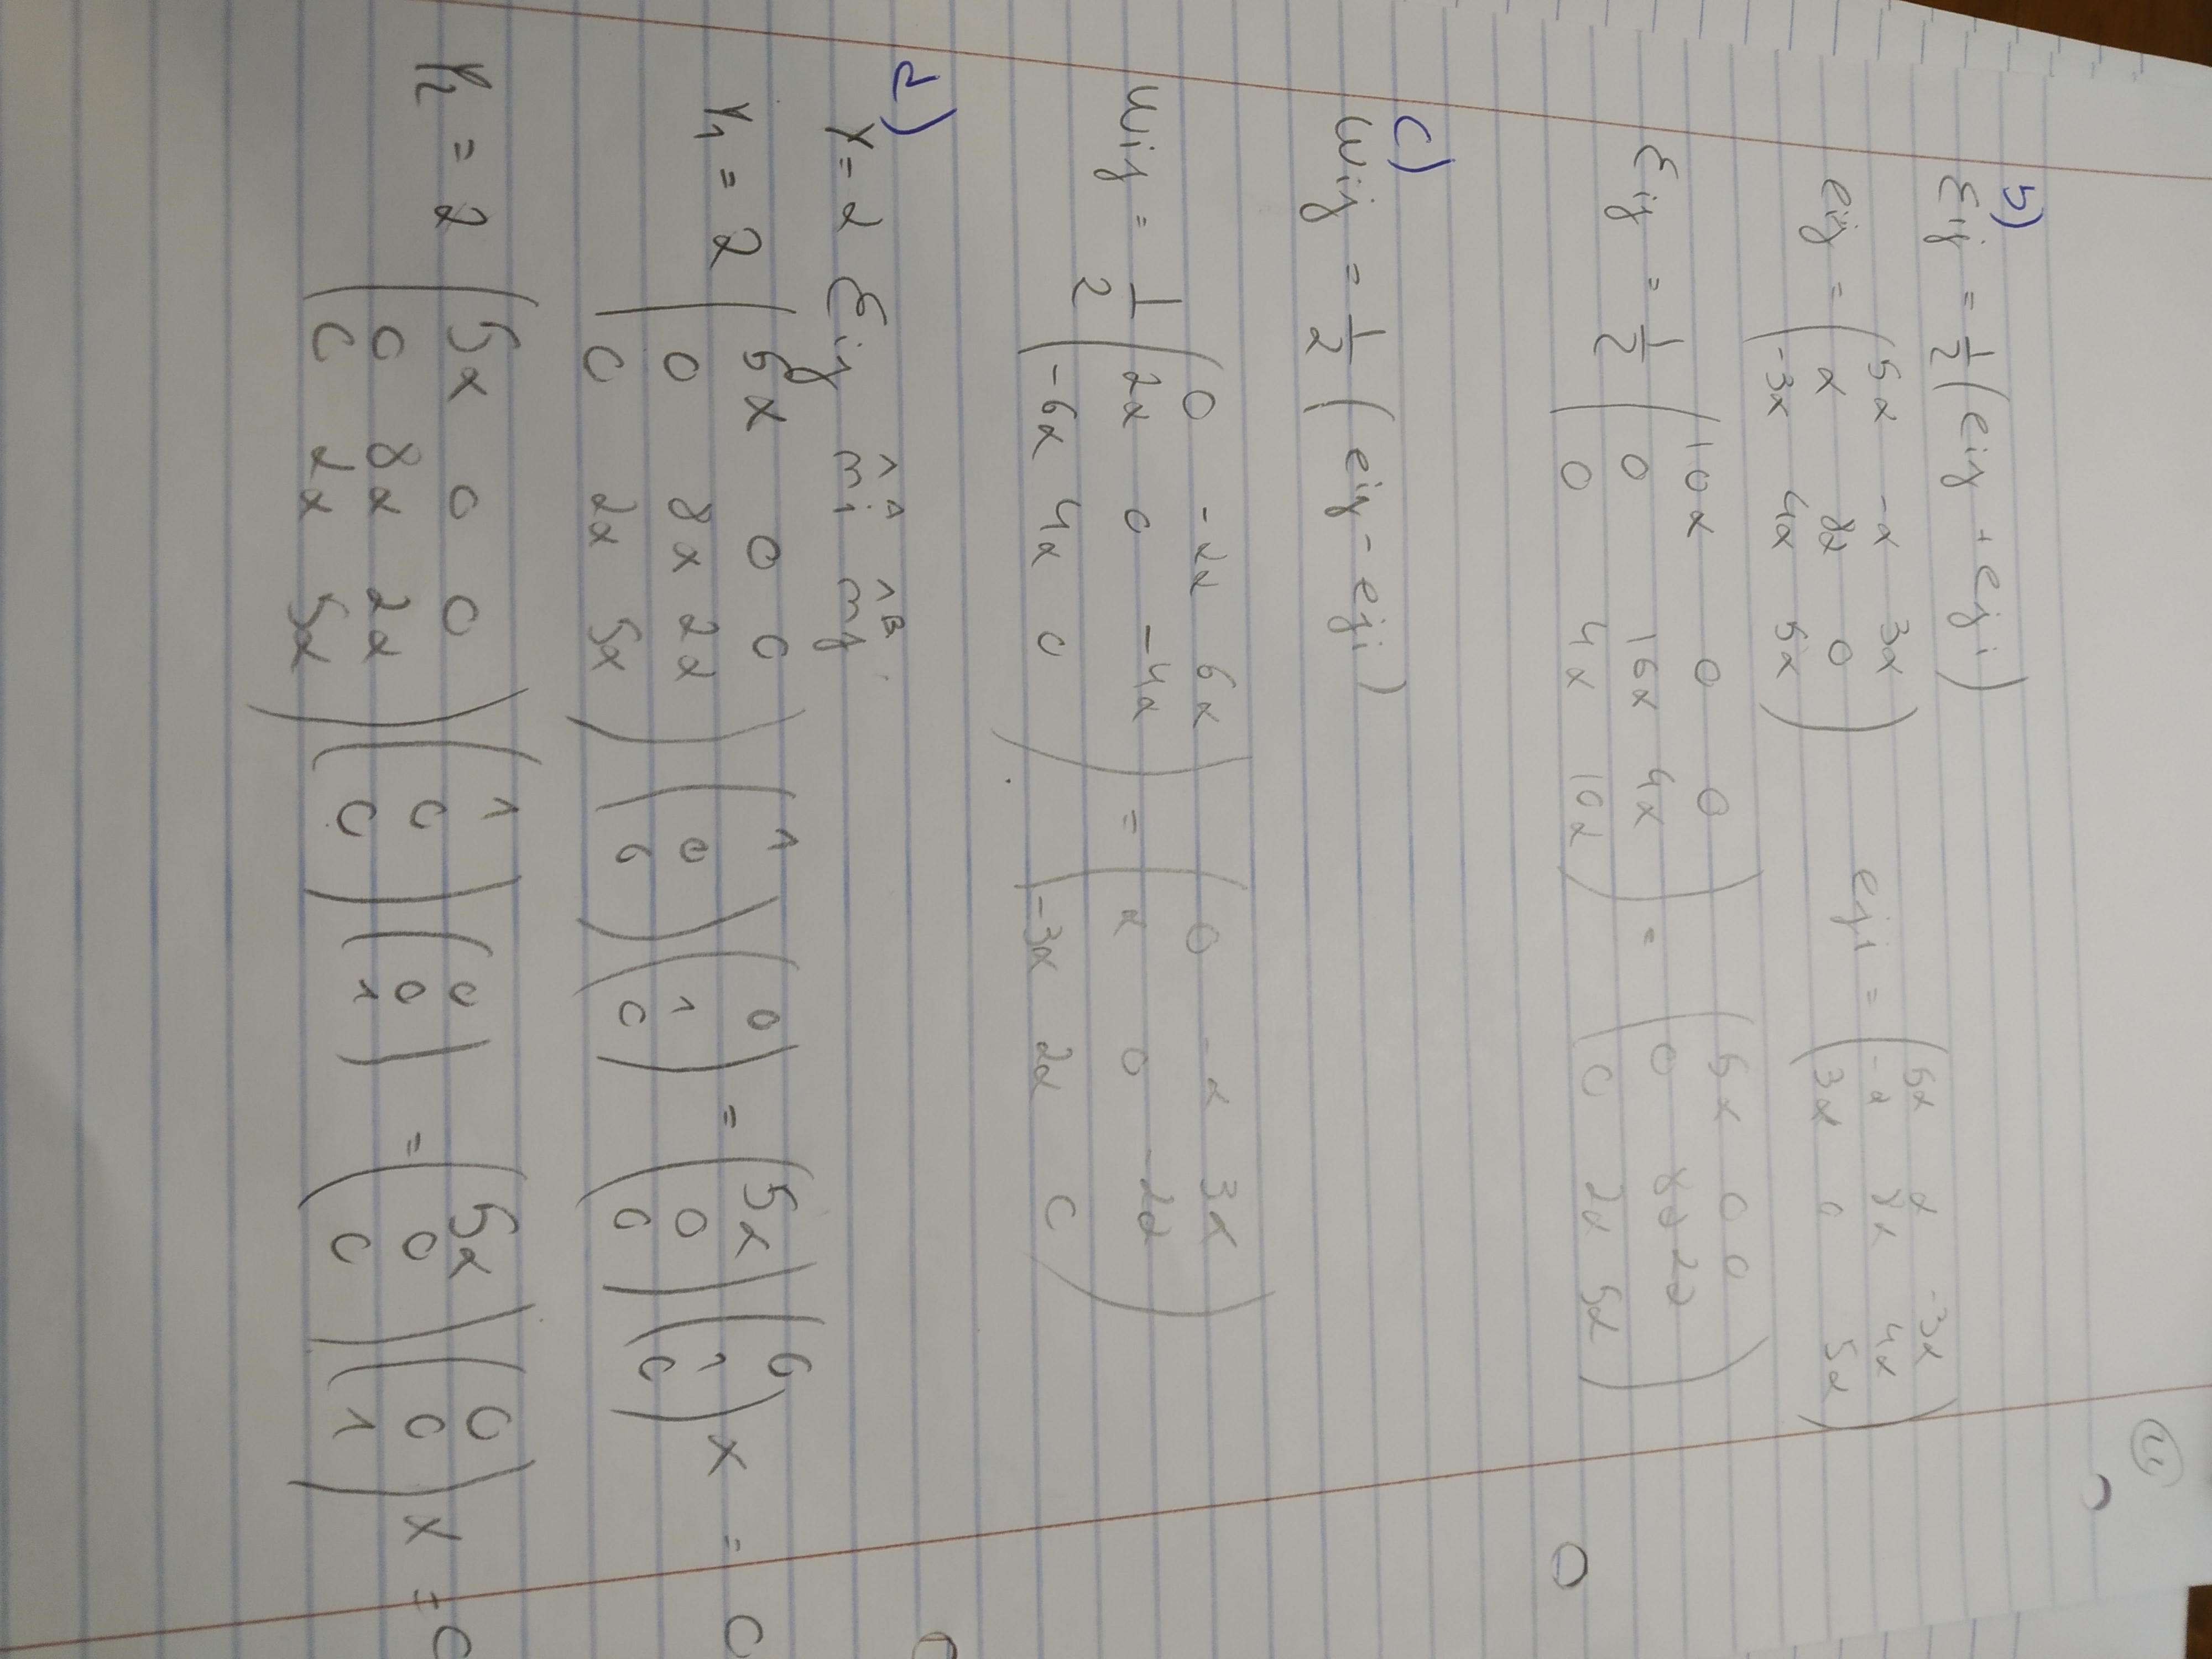 4
b)
εij = 1/2 (eij + eji)
eij = (5α -α 3α
α 8α 0
-3α 4α 5α)
eji = (5α α -3α
-α 8α 4α
3α 0 5α)
εij = 1/2 (10α 0 0
0 16α 4α
0 4α 10α) = (5α 0 0
0 8α 2α
0 2α 5α)
c)
wij = 1/2 (eij - eji)
wij = 1/2 (0 -2α 6α
2α 0 -4α
-6α 4α 0) = (0 -α 3α
α 0 -2α
-3α 2α 0)
d)
γ = 2 εij m̂i^A m̂j^B
γ1 = 2 (5α 0 0
0 8α 2α
0 2α 5α) (1
0
0) (0
1
0) = (5α
0
0) (0
1
0) x = 0
γ2 = 2 (5α 0 0
0 8α 2α
0 2α 5α) (1
0
0) (0
0
1) = (5α
0
0) (0
0
1) x = 0